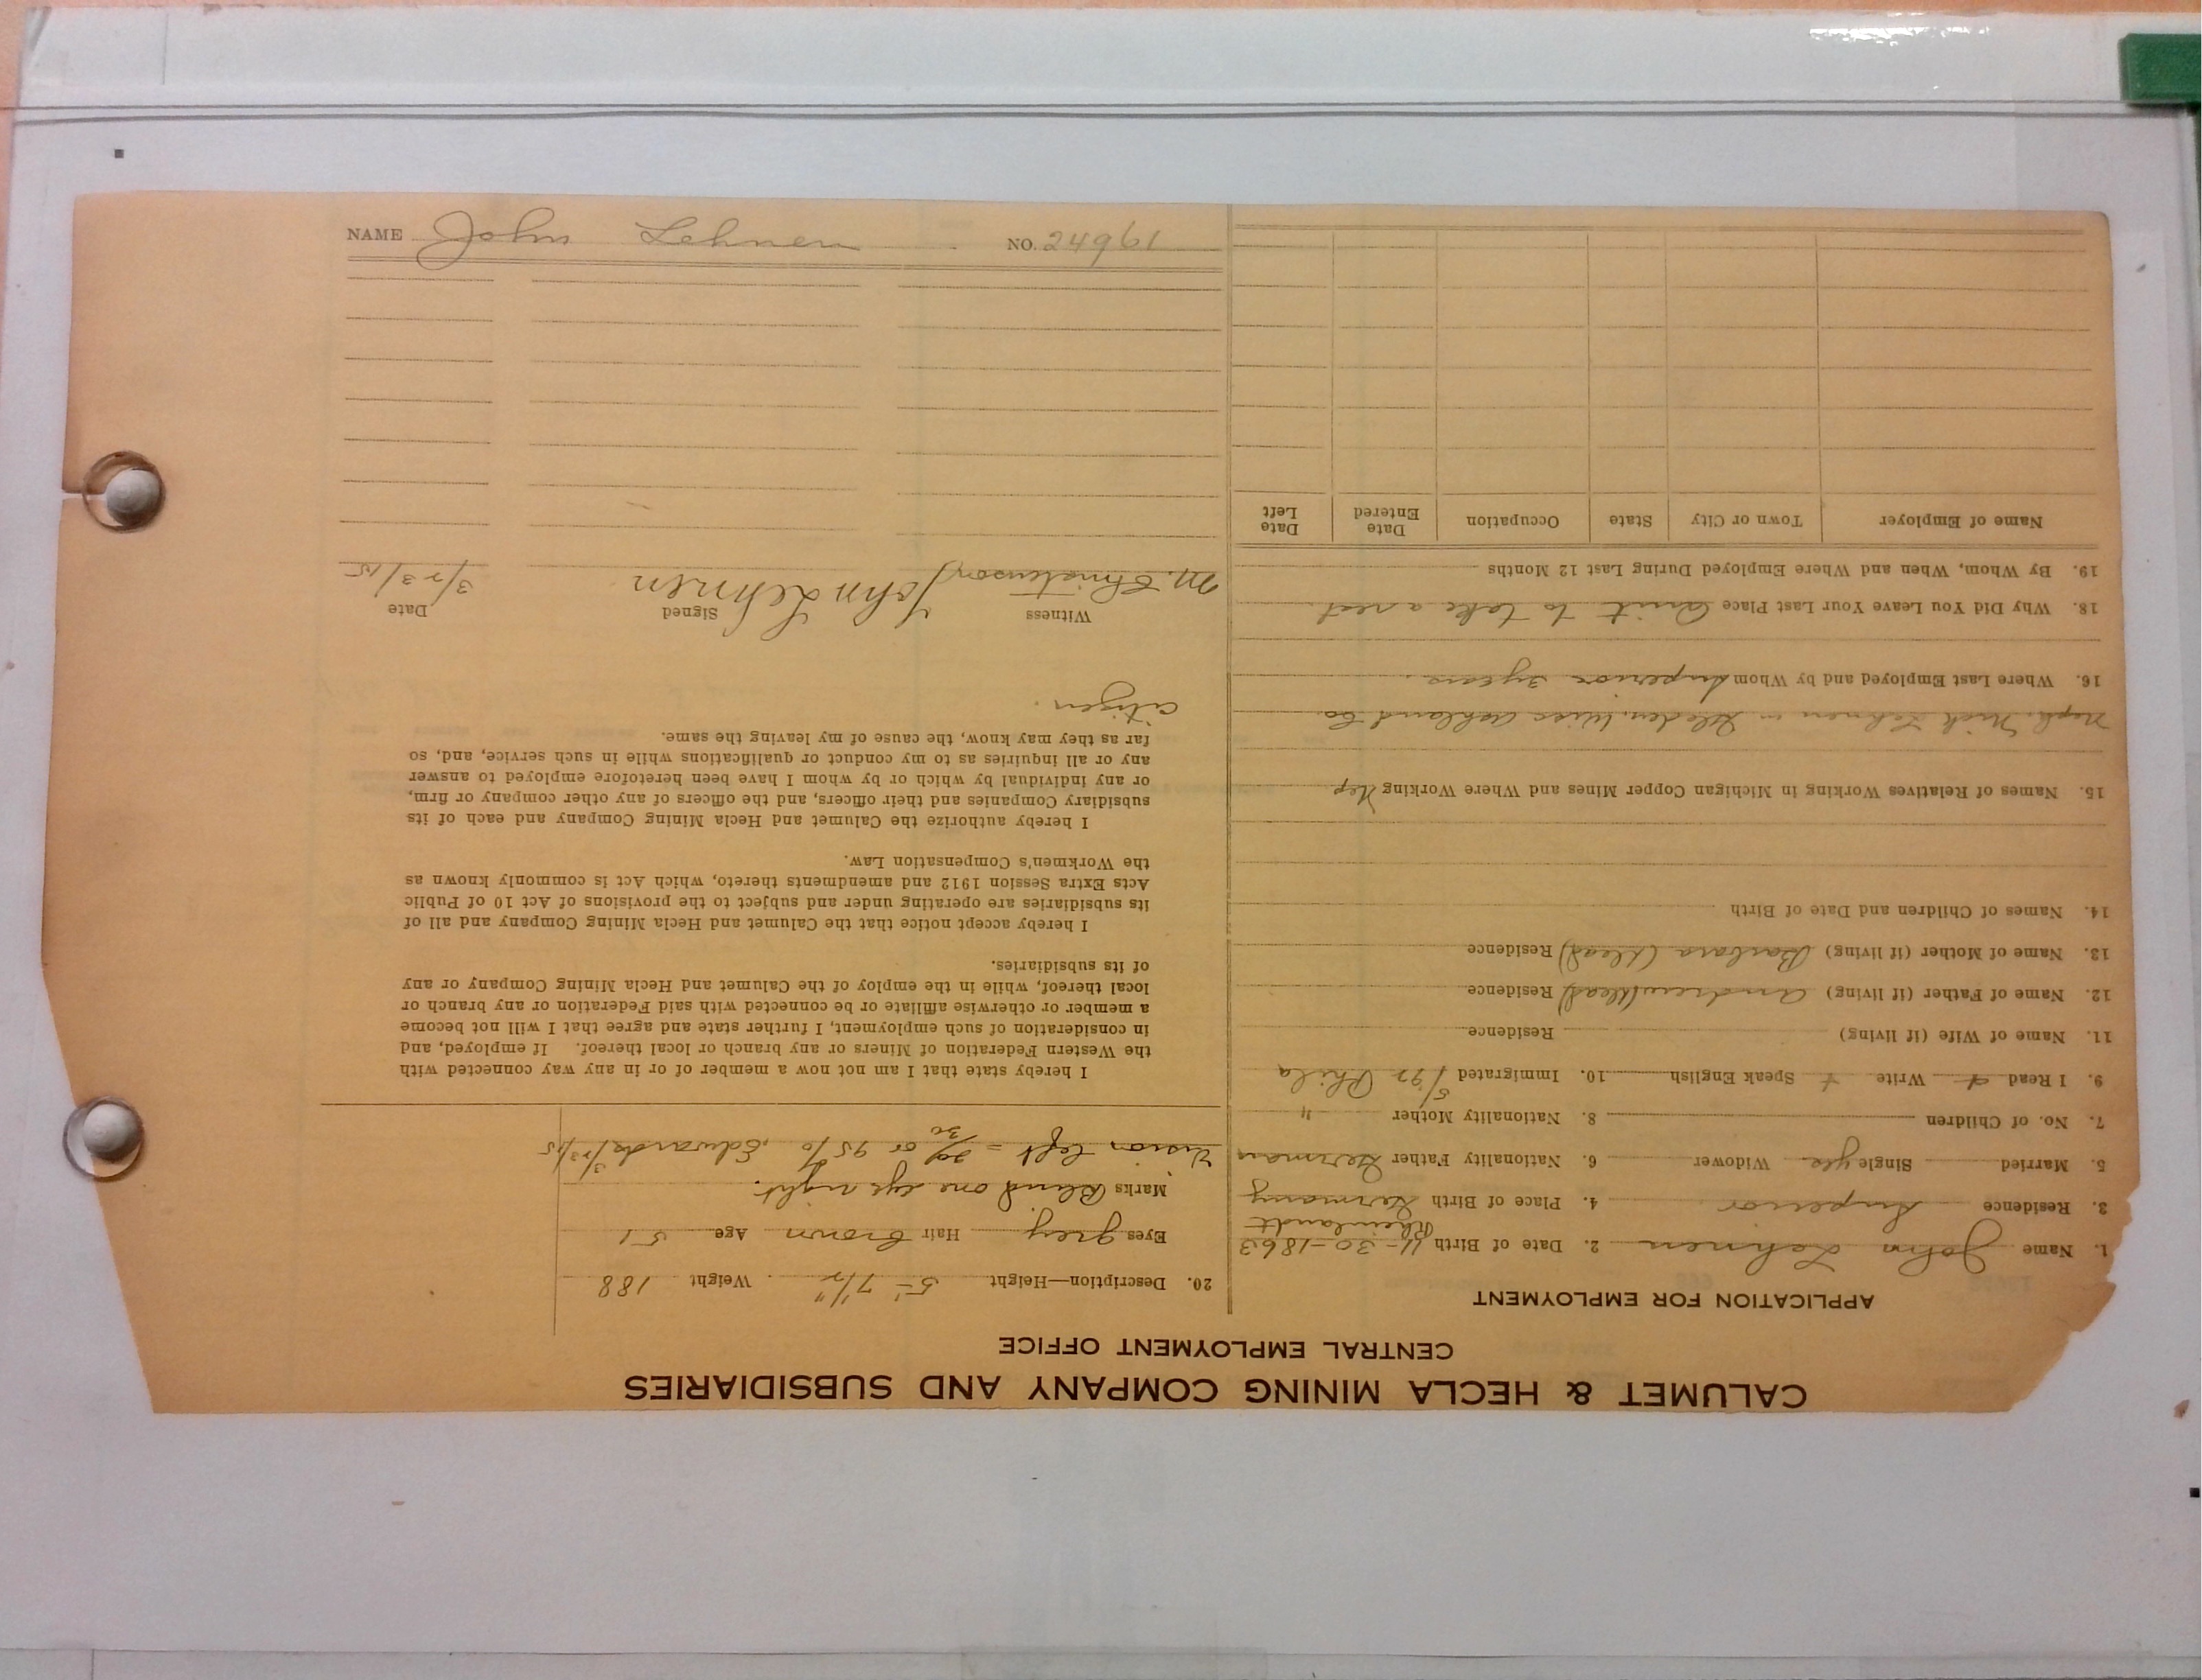 CALUMET & HECLA MINING COMPANY AND SUBSIDIARIES
CENTRAL EMPLOYMENT OFFICE
APPLICATION FOR EMPLOYMENT
1. Name John Lehnen 2. Date of Birth 11-30-1863
Rheinlandt
3. Residence Superior 4. Place of Birth Germany
5. Married Single yes Widower 6. Nationality Father German
7. No. of Children 8. Nationality Mother "
9. I Read + Write + Speak English 10. Immigrated 5/92 Phila
11. Name of Wife (if living) Residence
12. Name of Father (if living) Andrew (dead) Residence
13. Name of Mother (if living) Barbara (dead) Residence
14. Names of Children and Date of Birth
15. Names of Relatives Working in Michigan Copper Mines and Where Working Nep
Neph. Nick Lehnen in Glidden, Wisc Ashland Co.
16. Where Last Employed and by Whom Superior 3 years.
18. Why Did You Leave Your Last Place Quit to take a rest.
19. By Whom, When and Where Employed During Last 12 Months
Name of Employer Town or City State Occupation Date Entered Date Left
20. Description—Height 5' 7 1/2" Weight 188
Eyes grey Hair brown Age 51
Marks Blind one eye right.
Vision left = 20/30 or 95% Edwards 3/23/15
I hereby state that I am not now a member of or in any way connected with
the Western Federation of Miners or any branch or local thereof. If employed, and
in consideration of such employment, I further state and agree that I will not become
a member or otherwise affiliate or be connected with said Federation or any branch or
local thereof, while in the employ of the Calumet and Hecla Mining Company or any
of its subsidiaries.
I hereby accept notice that the Calumet and Hecla Mining Company and all of
its subsidiaries are operating under and subject to the provisions of Act 10 of Public
Acts Extra Session 1912 and amendments thereto, which Act is commonly known as
the Workmen's Compensation Law.
I hereby authorize the Calumet and Hecla Mining Company and each of its
subsidiary Companies and their officers, and the officers of any other company or firm,
or any individual by which or by whom I have been heretofore employed to answer
any or all inquiries as to my conduct or qualifications while in such service, and, so
far as they may know, the cause of my leaving the same.
citizen.
Witness Signed Date
M. Christenson John Lehnen 3/23/15
NAME John Lehnen NO. 24961